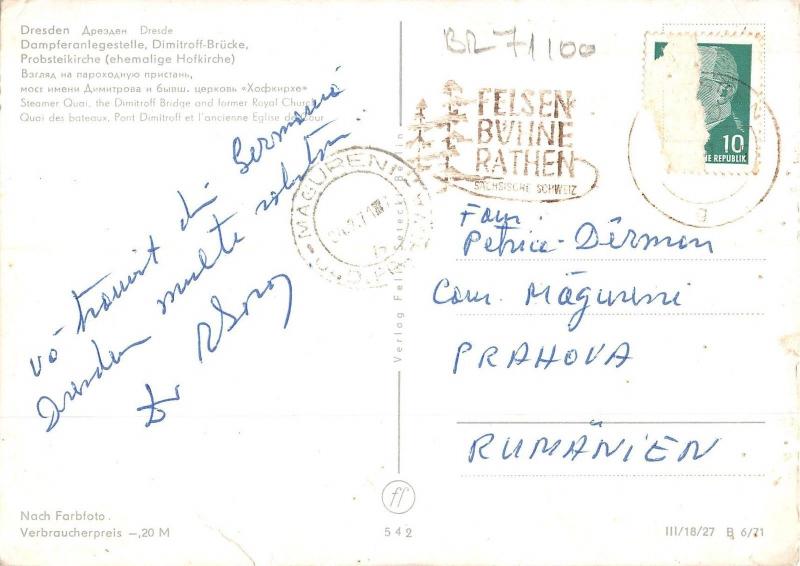 Dresden Дрезден Dresde
Dampferanlegestelle, Dimitroff-Brücke,
Probsteikirche (ehemalige Hofkirche)
Взгляд на пароходную пристань,
мост имени Димитрова и бывш. церковь «Хофкирхе»
Steamer Quai, the Dimitroff Bridge and former Royal Church
Quai des bateaux, Pont Dimitroff et l'ancienne Eglise de Cour
BR 71/100
FELSEN
BÜHNE
RATHEN
SÄCHSISCHE SCHWEIZ
10
REPUBLIK
MĂGURENI
Vă trimit din Germania
Dresden multe salutări
Dr
Verlag Felix Setecki, Berlin
Fam.
Petrice Dêrman
Com. Măgureni
PRAHOVA
RUMÄNIEN
Nach Farbfoto
Verbraucherpreis –,20 M
ff
542
III/18/27 B 6/71